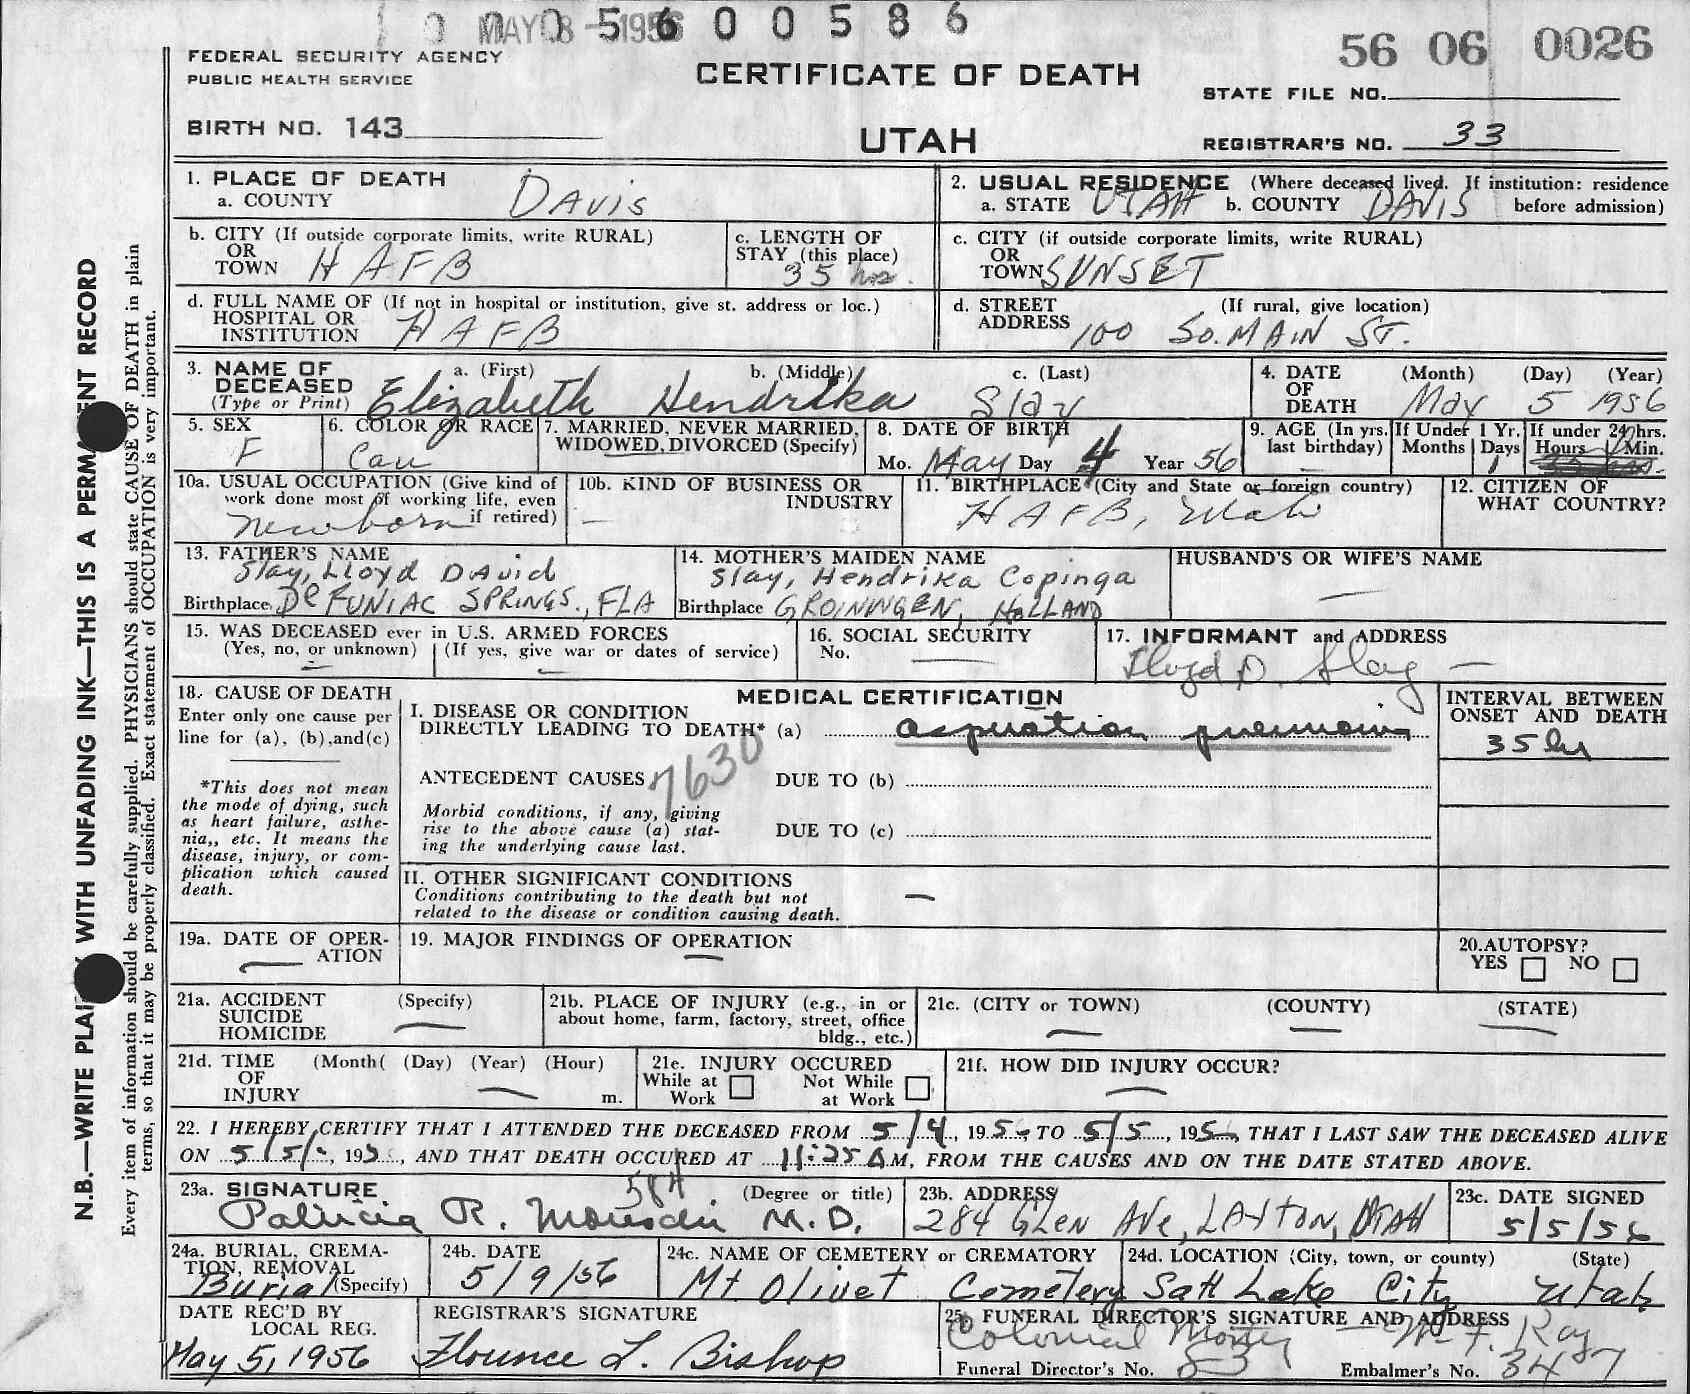 MAY 8 - 1956
5 6 0 0 5 8 6
56 06 0026
FEDERAL SECURITY AGENCY
PUBLIC HEALTH SERVICE
CERTIFICATE OF DEATH
STATE FILE NO.
BIRTH NO. 143
UTAH
REGISTRAR'S NO. 33
1. PLACE OF DEATH
a. COUNTY Davis
2. USUAL RESIDENCE (Where deceased lived. If institution: residence
a. STATE UTAH b. COUNTY DAVIS before admission)
b. CITY (If outside corporate limits, write RURAL)
OR
TOWN HAFB
c. LENGTH OF
STAY (this place)
35 hrs.
c. CITY (if outside corporate limits, write RURAL)
OR
TOWN SUNSET
d. FULL NAME OF (If not in hospital or institution, give st. address or loc.)
HOSPITAL OR
INSTITUTION HAFB
d. STREET (If rural, give location)
ADDRESS 100 So. MAIN ST.
3. NAME OF a. (First) b. (Middle) c. (Last)
DECEASED
(Type or Print) Elizabeth Hendrika Slay
4. DATE (Month) (Day) (Year)
OF
DEATH May 5 1956
5. SEX
F
6. COLOR OR RACE
Cau
7. MARRIED, NEVER MARRIED,
WIDOWED, DIVORCED (Specify)
8. DATE OF BIRTH
Mo. May Day 4 Year 56
9. AGE (In yrs.
last birthday)
If Under 1 Yr.
Months Days
1
If under 24 hrs.
Hours Min.
10a. USUAL OCCUPATION (Give kind of
work done most of working life, even
if retired)
newborn
10b. KIND OF BUSINESS OR
INDUSTRY
—
11. BIRTHPLACE (City and State or foreign country)
HAFB, Utah
12. CITIZEN OF
WHAT COUNTRY?
13. FATHER'S NAME
Slay, Lloyd David
Birthplace De FUNIAC SPRINGS., FLA
14. MOTHER'S MAIDEN NAME
Slay, Hendrika Copinga
Birthplace GROININGEN, HOLLAND
HUSBAND'S OR WIFE'S NAME
—
15. WAS DECEASED ever in U.S. ARMED FORCES
(Yes, no, or unknown) (If yes, give war or dates of service)
16. SOCIAL SECURITY
No. —
17. INFORMANT and ADDRESS
Lloyd D. Slay —
18. CAUSE OF DEATH
Enter only one cause per
line for (a), (b), and (c)
*This does not mean
the mode of dying, such
as heart failure, asthe-
nia,, etc. It means the
disease, injury, or com-
plication which caused
death.
MEDICAL CERTIFICATION
I. DISEASE OR CONDITION
DIRECTLY LEADING TO DEATH* (a) aspiration pneumonia
7630
ANTECEDENT CAUSES DUE TO (b)
Morbid conditions, if any, giving
rise to the above cause (a) stat-
ing the underlying cause last.
DUE TO (c)
II. OTHER SIGNIFICANT CONDITIONS
Conditions contributing to the death but not
related to the disease or condition causing death.
—
INTERVAL BETWEEN
ONSET AND DEATH
35 hr
19a. DATE OF OPER-
ATION
—
19. MAJOR FINDINGS OF OPERATION
—
20. AUTOPSY?
YES NO
21a. ACCIDENT (Specify)
SUICIDE
HOMICIDE
—
21b. PLACE OF INJURY (e.g., in or
about home, farm, factory, street, office
bldg., etc.)
21c. (CITY or TOWN) (COUNTY) (STATE)
— — —
21d. TIME (Month( (Day) (Year) (Hour)
OF
INJURY — m.
21e. INJURY OCCURED
While at Not While
Work at Work
21f. HOW DID INJURY OCCUR?
—
22. I HEREBY CERTIFY THAT I ATTENDED THE DECEASED FROM 5/4, 1956 TO 5/5, 1956, THAT I LAST SAW THE DECEASED ALIVE
ON 5/5/, 195, AND THAT DEATH OCCURED AT 11:25 AM, FROM THE CAUSES AND ON THE DATE STATED ABOVE.
23a. SIGNATURE (Degree or title)
Patricia R. M.D.
23b. ADDRESS
284 GLEN AVE, LAYTON, UTAH
23c. DATE SIGNED
5/5/56
24a. BURIAL, CREMA-
TION, REMOVAL
Burial (Specify)
24b. DATE
5/9/56
24c. NAME OF CEMETERY or CREMATORY
Mt Olivet Cemetery
24d. LOCATION (City, town, or county) (State)
Salt Lake City Utah
DATE REC'D BY
LOCAL REG.
May 5, 1956
REGISTRAR'S SIGNATURE
Flounce L. Bishop
25. FUNERAL DIRECTOR'S SIGNATURE AND ADDRESS
Colonial F. Ray
Funeral Director's No. 83 Embalmer's No. 347
N.B.—WRITE PLAI WITH UNFADING INK—THIS IS A PERMA ENT RECORD
Every item of information should be carefully supplied. PHYSICIANS should state CAUSE OF DEATH in plain
terms, so that it may be properly classified. Exact statement of OCCUPATION is very important.